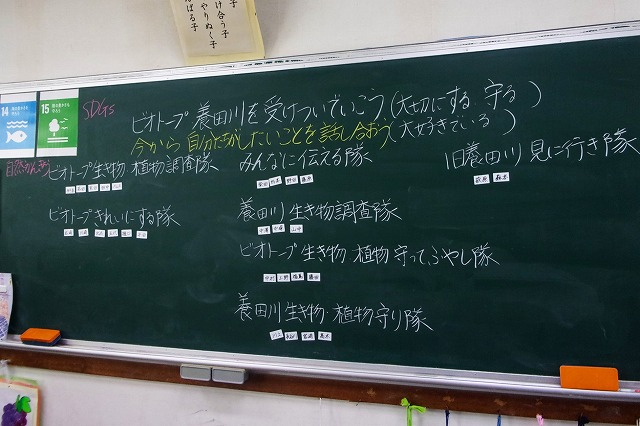 け合う子
やりぬく子
ばる子
14
15
SDGs
ビオトープ 養田川を受けついでいこう(大切にする 守る)
今から 自分たちがしたいことを話し合おう(大好きでいる)
ビオトープ生き物・植物調査隊
みんなに伝える隊
旧養田川 見に行き隊
ビオトープきれいにする隊
養田川 生き物調査隊
ビオトープ 生き物 植物 守って、ふやし隊
養田川 生き物・植物守り隊